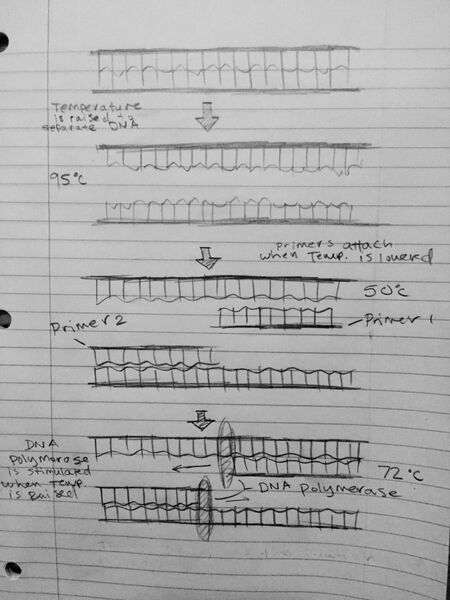 Temperature
is raised to
separate DNA
95°C
Primers attach
when Temp. is lowered
50°C
Primer 1
Primer 2
DNA
polymerase
is stimulated
when Temp.
is Raised
72°C
DNA Polymerase